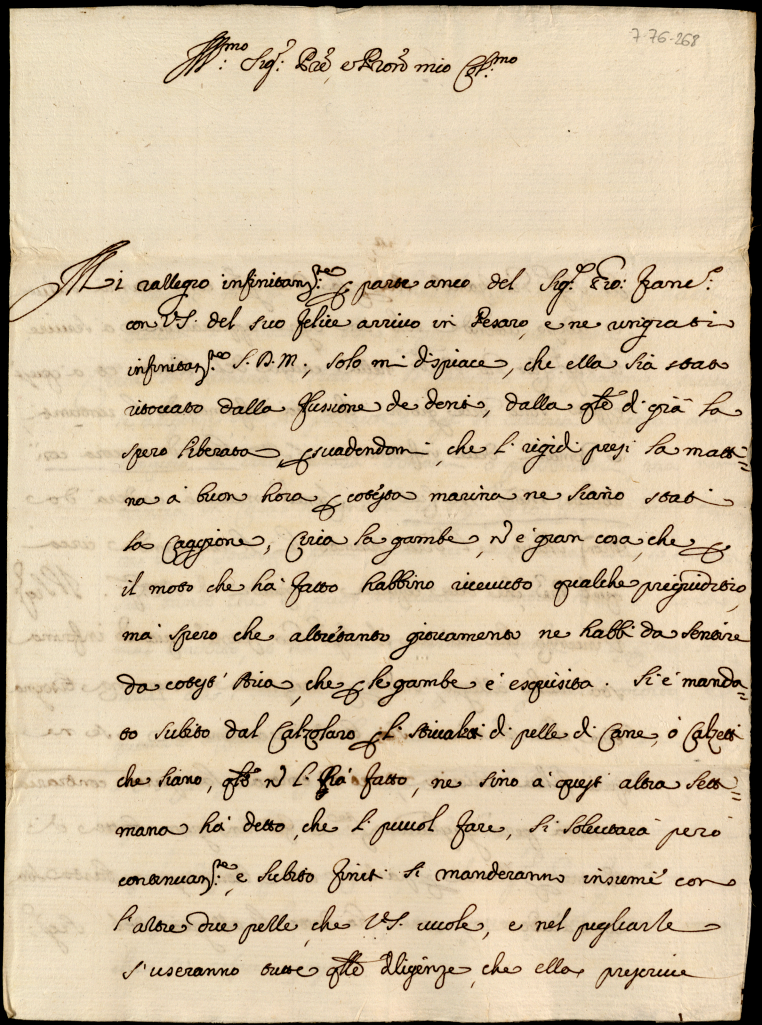 7-76-268
Ill.mo Sig.r Pre, e Pron mio Col.mo
Mi rallegro infinitam.te p parte anco del Sig.r Gio: Franc.o
con V.S. del suo felice arrivo in Pesaro, e ne ringratio
infinitam.te S.D.M., solo mi dispiace, che ella sia stata
ritoccata dalla flussione de denti, dalla qle di già la
spero liberata, psuadendomi, che l'rigidi presi la matti=
na à buon hora p cotesta marina ne siano stati
la Caggione, Circa la gambe, nõ è gran cosa, che p
il moto che hà fatto habbino ricevuto qualche pregiuditio,
mà spero che altretanto giovamento ne habbi da sentire
da cotest' Aria, che p le gambe è esquisita. Si è manda=
to subito dal Calzolaro p li stivaletti di pelle di Cane, ò Calzetti
che siano, qle nõ l'hà fatto, ne sino à quest'altra setti=
mana hà detto, che li puuol fare, si solecitarà però
continuam.te, e subito finiti si manderanno insieme con
l'altre due pelle, che V.S. vuole, e nel pigliarle
s'useranno tutte qlle diligenze, che ella prescrive